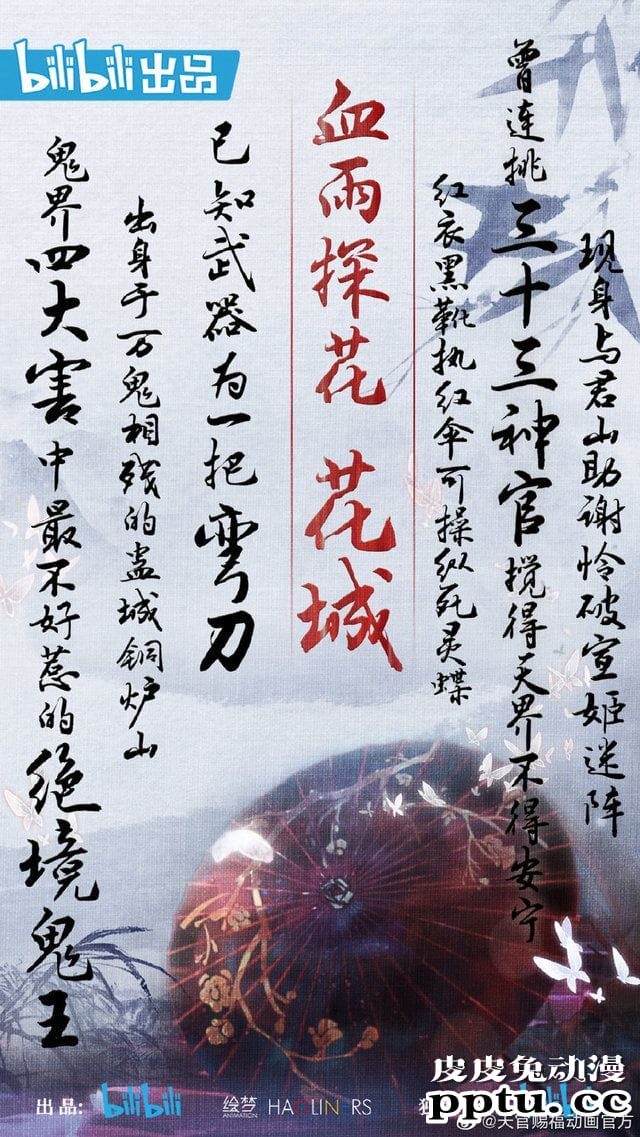 bilibili出品
曾连挑三十三神官搅得天界不得安宁
现身与君山助谢怜破宣姬迷阵
红衣黑靴执红伞可操纵死灵蝶
血雨探花 花城
已知武器为一把弯刀
出身于万鬼相残的蛊城铜炉山
鬼界四大害中最不好惹的绝境鬼王
皮皮兔动漫
pptu.cc
出品: bilibili 绘梦 ANIMATION HAOLINERS
@天官赐福动画官方